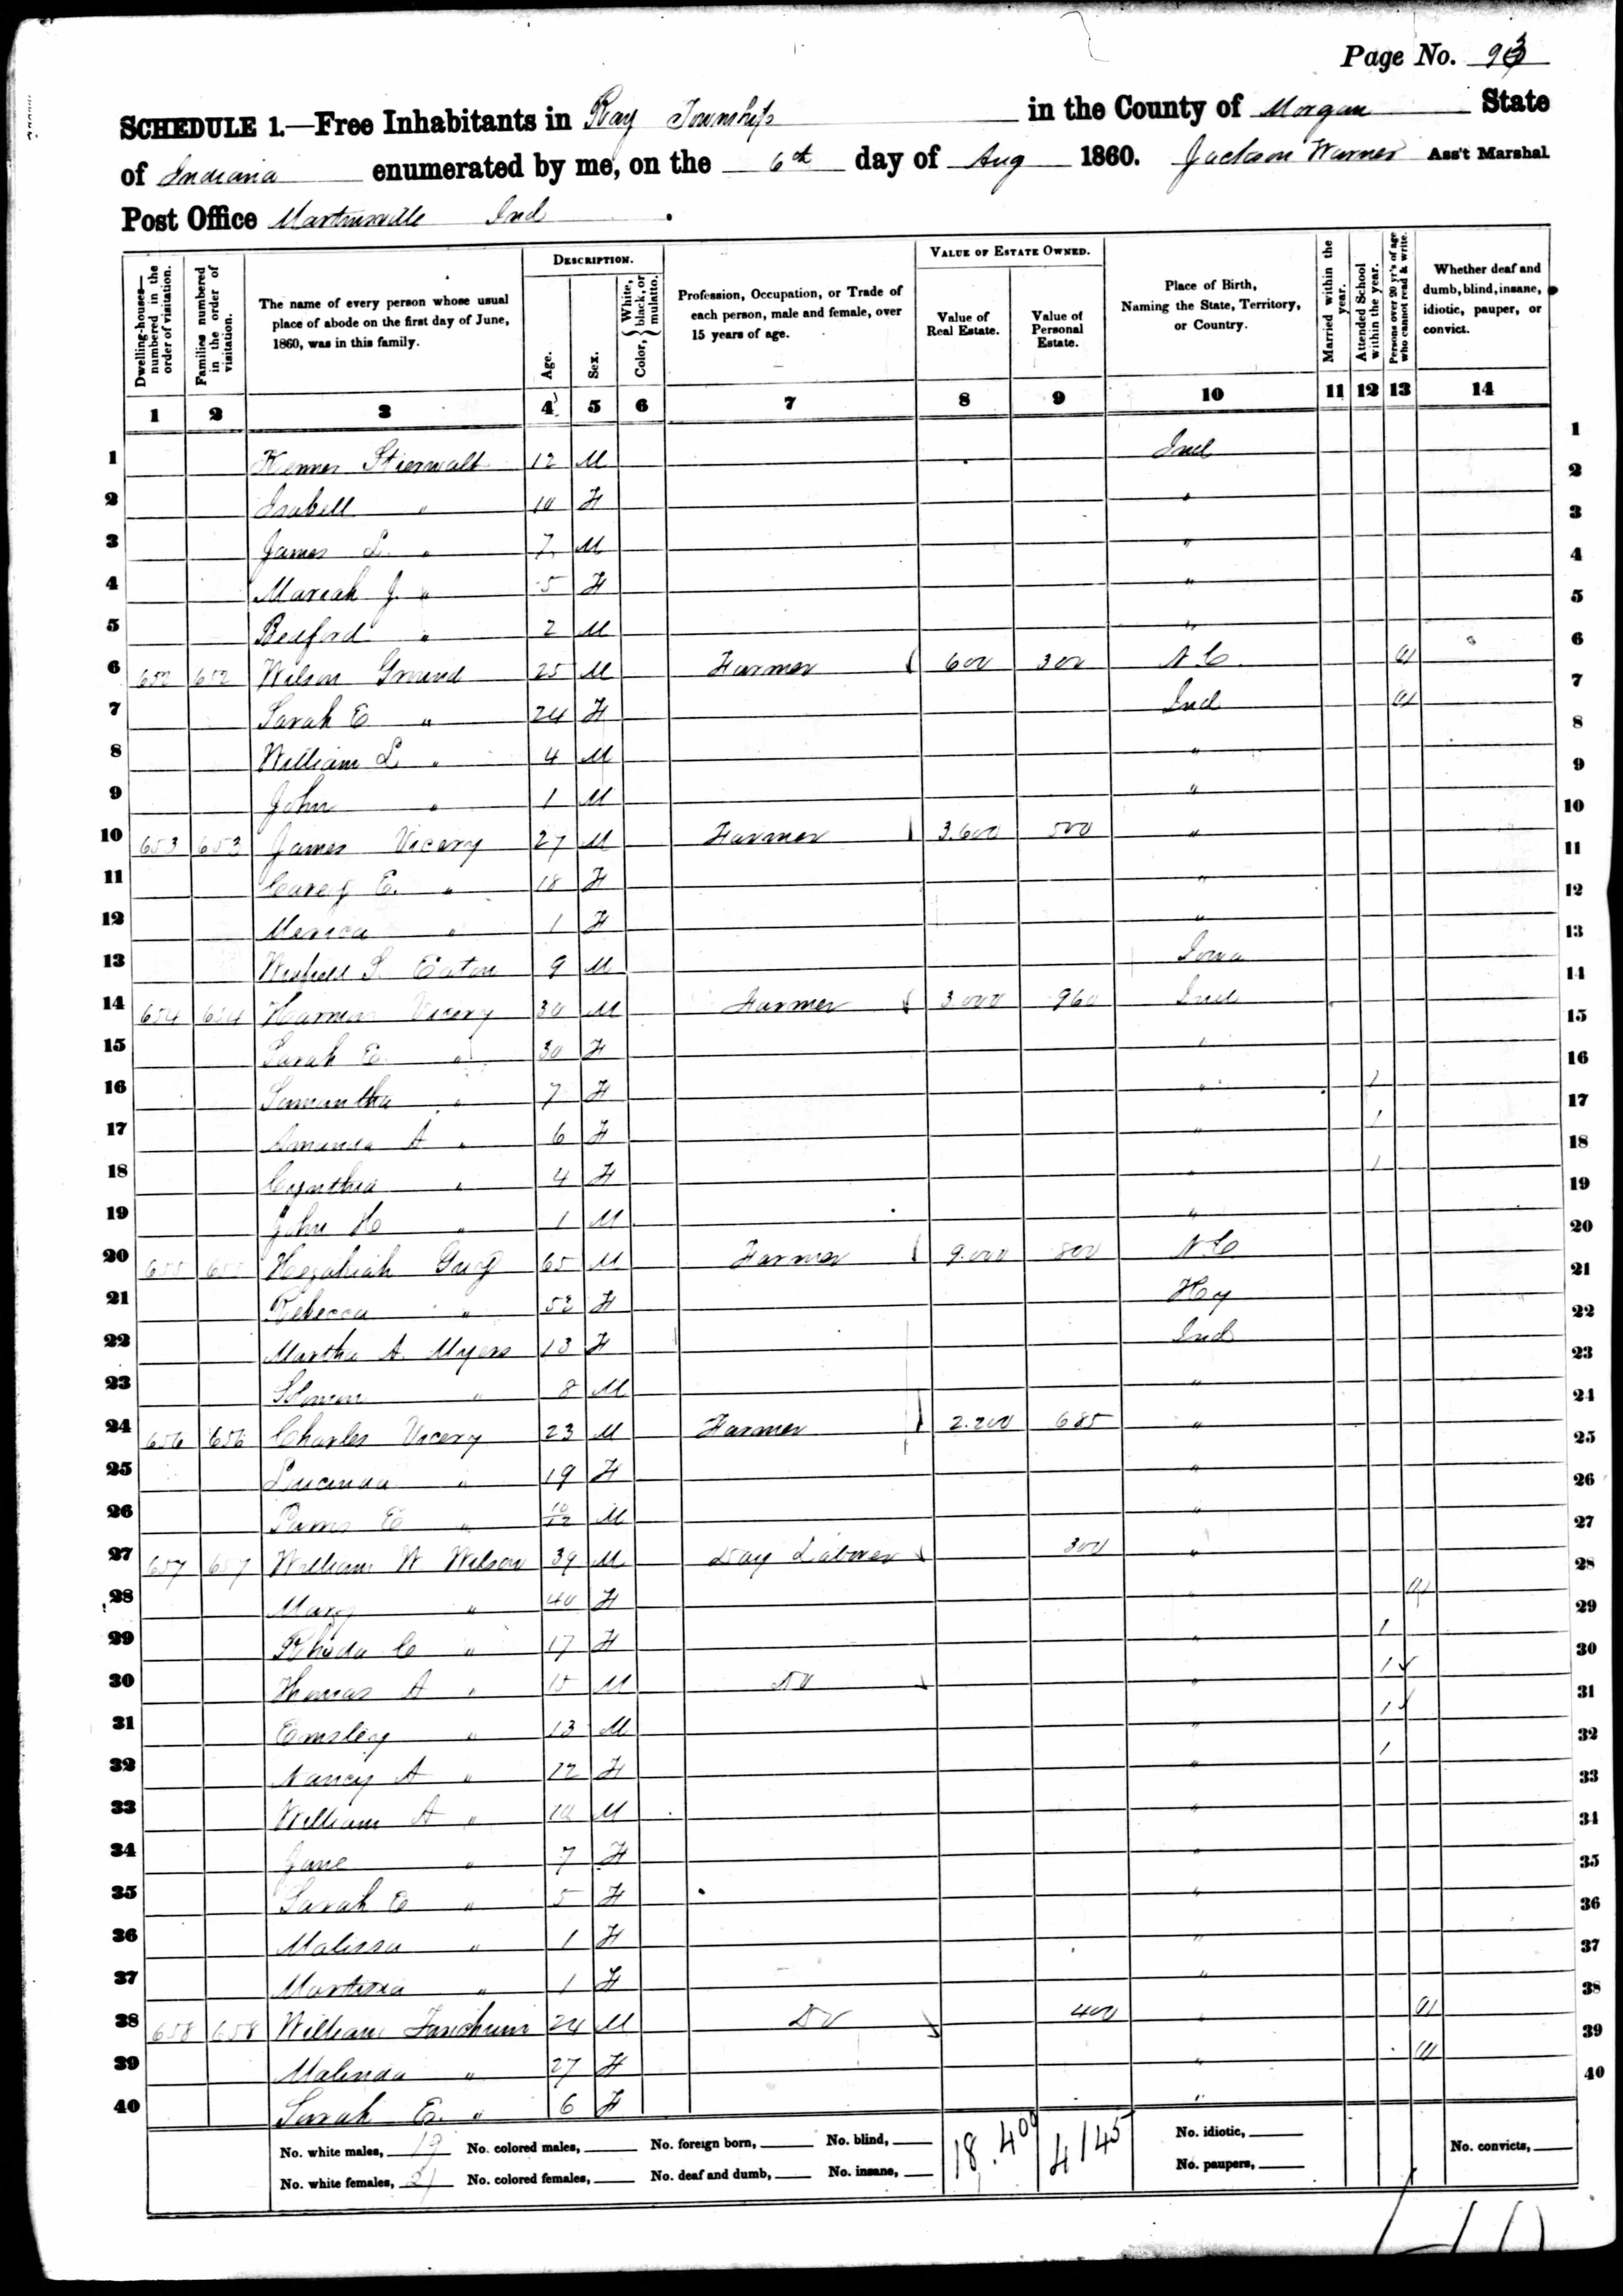 Page No. 93
SCHEDULE 1.—Free Inhabitants in Ray Township in the County of Morgan State
of Indiana enumerated by me, on the 6th day of Aug 1860. Jackson Warner Ass't Marshal
Post Office Martinsville Ind.
Dwelling-houses—numbered in the order of visitation. Families numbered in the order of visitation. The name of every person whose usual place of abode on the first day of June, 1860, was in this family. DESCRIPTION. Age. Sex. Color, { White, black, or mulatto. Profession, Occupation, or Trade of each person, male and female, over 15 years of age. VALUE OF ESTATE OWNED. Value of Real Estate. Value of Personal Estate. Place of Birth, Naming the State, Territory, or Country. Married within the year. Attended School within the year. Persons over 20 yr's of age who cannot read & write. Whether deaf and dumb, blind, insane, idiotic, pauper, or convict.
1 2 3 4 5 6 7 8 9 10 11 12 13 14
1 Stierwalt 12 M Ind 1
2 Isabell " 10 F " 2
3 James L. " 7 M " 3
4 Mariah J. " 5 F " 4
5 Bedford " 2 M " 5
6 652 652 Wilson Ground 25 M Farmer 600 300 N C 6
7 Sarah E " 24 F Ind 7
8 William L " 4 M " 8
9 John " 1 M " 9
10 653 653 James Vicery 27 M Farmer 3.600 500 " 10
11 E. " 18 F " 11
12 " 1 F " 12
13 S. Eaton 9 M Iowa 13
14 654 654 Vicery 30 M Farmer 3.000 960 Ind 14
15 Sarah E. " 30 F " 15
16 Samantha " 7 F " 1 16
17 Amanda A " 6 F " 1 17
18 Cynthia " 4 F " 1 18
19 John H " 1 M " 19
20 655 655 Hezakiah 65 M Farmer 9.000 800 N C 20
21 Rebecca " 52 F Ky 21
22 Martha A. Myers 13 F Ind 22
23 Solomon " 8 M " 23
24 656 656 Charles Vicery 23 M Farmer 2.200 685 " 24
25 Lucinda " 19 F " 25
26 E " 10/12 M " 26
27 657 657 William W Wilson 39 M Day Laborer 300 " 27
28 Mary " 40 F " 28
29 Rhuda C " 17 F " 1 29
30 Thomas A " 15 M Do " 1 30
31 Emsley " 13 M " 1 31
32 Nancy A " 12 F " 1 32
33 William A " 10 M " 33
34 Jane " 7 F " 34
35 Sarah E " 5 F " 35
36 Malissa " 1 F " 36
37 " 1 F " 37
38 658 658 William 24 M Do 400 " 38
39 Malinda " 27 F " 39
40 Sarah E. " 6 F " 40
No. white males, 19 No. colored males, No. foreign born, No. blind, 18,400 4145 No. idiotic, No. convicts,
No. white females, 21 No. colored females, No. deaf and dumb, No. insane, No. paupers,